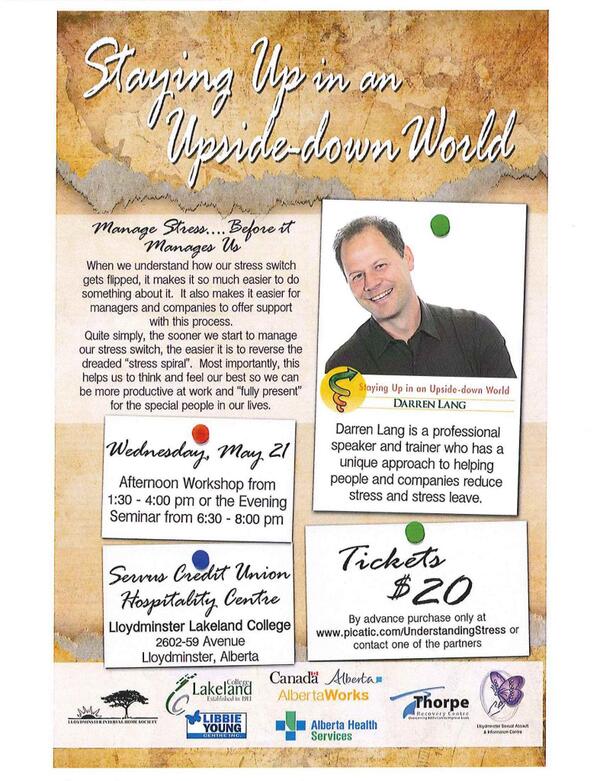 Staying Up in an
Upside-down World
Manage Stress.... Before it
Manages Us
When we understand how our stress switch
gets flipped, it makes it so much easier to do
something about it. It also makes it easier for
managers and companies to offer support
with this process.
Quite simply, the sooner we start to manage
our stress switch, the easier it is to reverse the
dreaded "stress spiral". Most importantly, this
helps us to think and feel our best so we can
be more productive at work and "fully present"
for the special people in our lives.
Staying Up in an Upside-down World
DARREN LANG
Darren Lang is a professional
speaker and trainer who has a
unique approach to helping
people and companies reduce
stress and stress leave.
Wednesday, May 21
Afternoon Workshop from
1:30 - 4:00 pm or the Evening
Seminar from 6:30 - 8:00 pm
Servus Credit Union
Hospitality Centre
Lloydminster Lakeland College
2602-59 Avenue
Lloydminster, Alberta
Tickets
$20
By advance purchase only at
www.picatic.com/UnderstandingStress or
contact one of the partners
LLOYDMINSTER INTERVAL HOME SOCIETY
Lakeland
College
Established in 1913
LIBBIE
YOUNG
CENTRE INC.
Canada Alberta
AlbertaWorks
Alberta Health
Services
Thorpe
Recovery Centre
Lloydminster Sexual Assault
& Information Centre